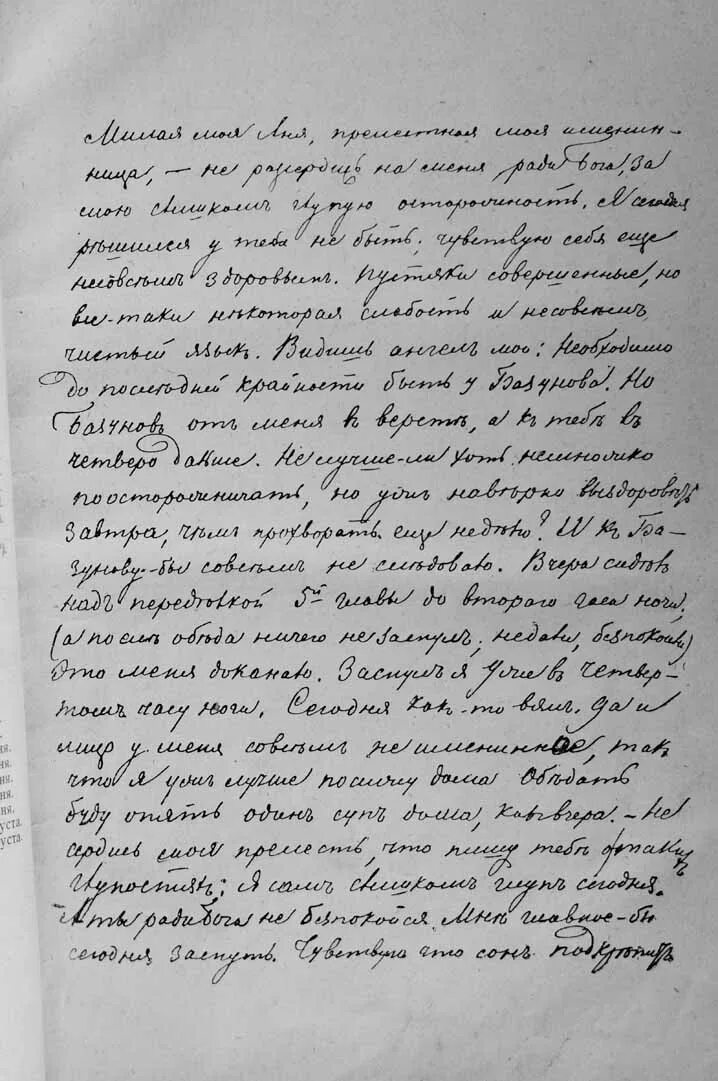 Милая моя Аня, прелестная моя именин-
ница, — не разсердись на меня ради Бога, за
мою слишкомъ глупую осторожность. Я сегодня
рѣшился у тебя не быть; чувствую себя еще
несовсѣмъ здоровымъ. Пустяки совершенные, но
все-таки нѣкоторая слабость и несовсѣмъ
чистый языкъ. Видишь ангелъ мой: Необходимо
до послѣдней крайности быть у Базунова. Но
Базуновъ отъ меня въ верстѣ, а къ тебѣ въ
четверо дальше. Не лучше-ли хоть немножко
поосторожничать, но ужь навѣрно выздоровѣть
завтра, чѣмъ прохворать еще недѣлю? И къ Ба-
зунову-бы совсѣмъ не слѣдовало. Вчера сидѣлъ
надъ передѣлкой 5й главы до втораго часа ночи;
(а послѣ обѣда ничего не заснулъ; недали, безпокоили)
Это меня доканало. Заснулъ я уже въ четвер-
томъ часу ночи. Сегодня какъ-то вялъ, да и
лицо у меня совсѣмъ не именинное, такъ
что я ужь лучше посижу дома Обѣдать
буду опять одинъ супъ дома, какъ вчера. — Не
сердись моя прелесть, что пишу тебѣ о такихъ
глупостяхъ; я самъ слишкомъ глупъ сегодня.
А ты ради Бога не безпокойся. Мнѣ главное-бы
сегодня заснуть. Чувствую что сонъ подкрѣпитъ